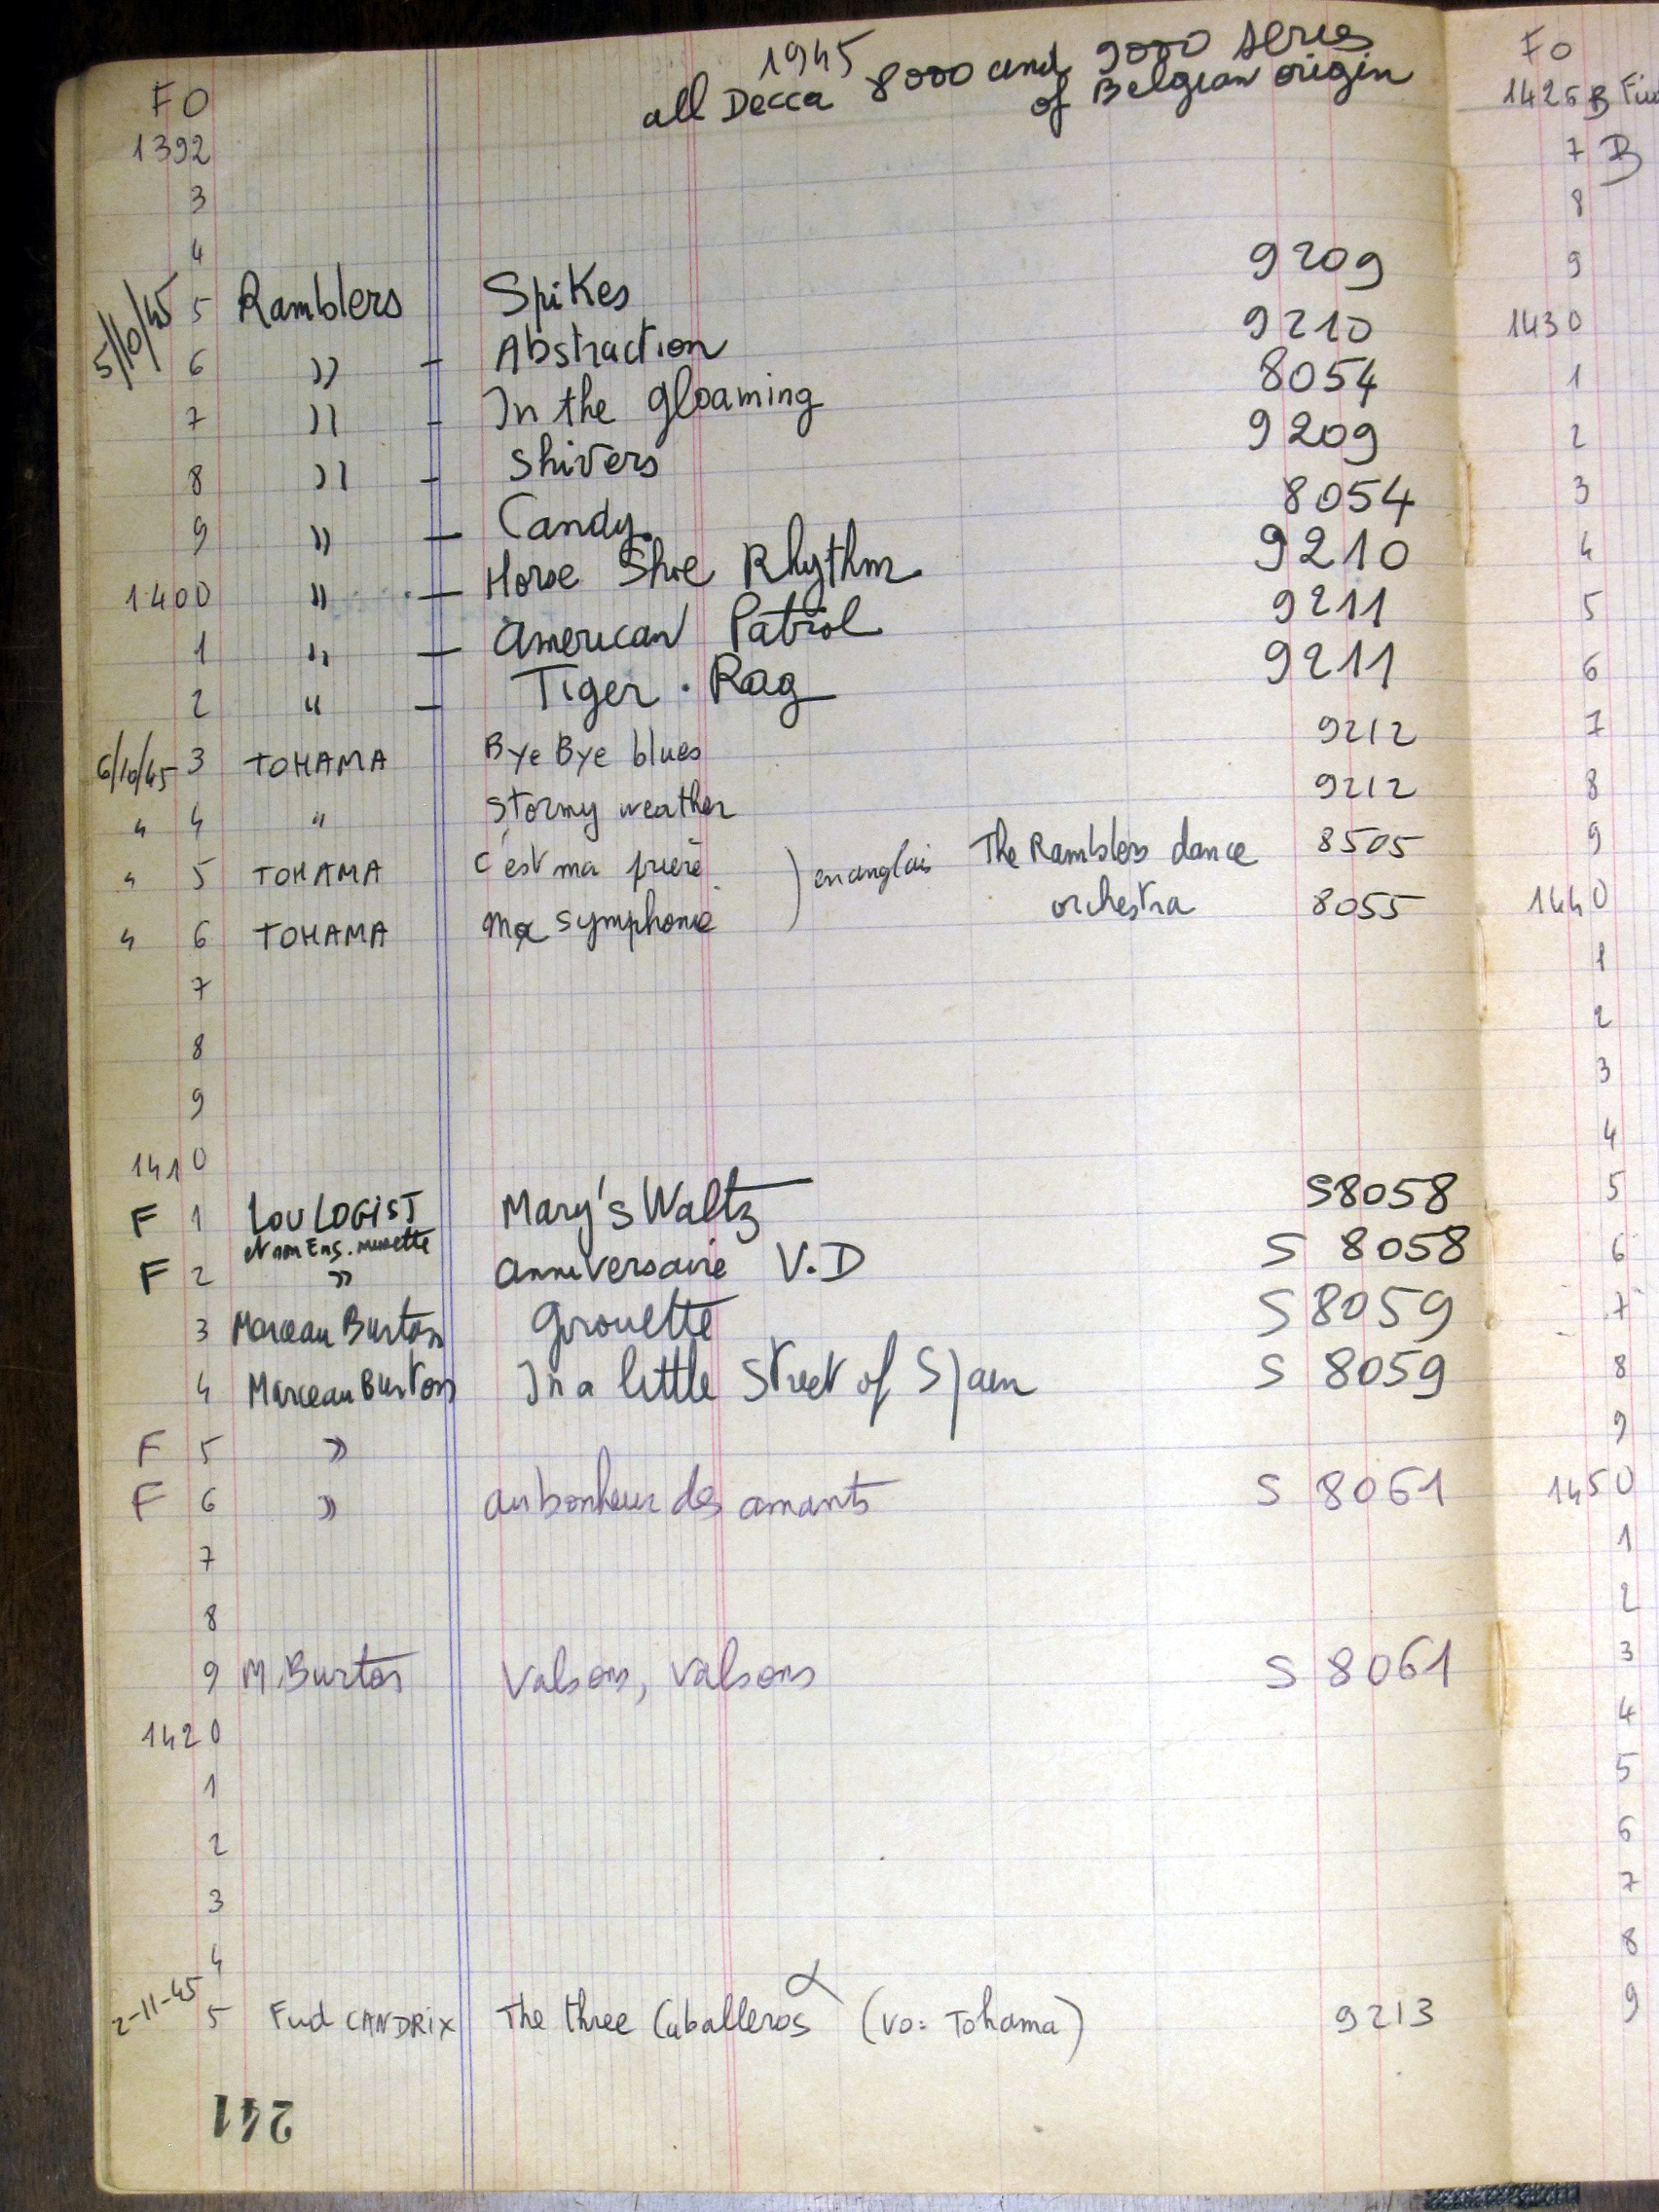 1945
all Decca 8000 and 9000 series
of Belgian origin
FO
1392
3
4
5/10/45 5 Ramblers Spikes 9209
6 » - Abstraction 9210
7 » - In the gloaming 8054
8 » - Shivers 9209
9 » - Candy. 8054
1400 » - Horse Shoe Rhythm 9210
1 " - American Patrol 9211
2 " - Tiger. Rag 9211
6/10/45 3 TOHAMA Bye Bye blues 9212
" 4 " Stormy weather 9212
" 5 TOHAMA C'est ma prière ) en anglais The Ramblers dance 8505
" 6 TOHAMA Ma symphonie orchestra 8055
7
8
9
1410
F 1 LOU LOGIST Mary's Waltz S8058
et son Ens. musette
F 2 » anniversaire V.D S 8058
3 Marceau Burton Girouette S 8059
4 Marceau Burton In a little Street of Spain S 8059
F 5 »
F 6 » au bonheur des amants S 8061
7
8
9 M. Burton Valsons, valsons S 8061
1420
1
2
3
4
2-11-45 5 Fud CANDRIX The three Caballeros α (vo: Tohama) 9213
241
FO
1425 B
7 B
8
9
1430
1
2
3
4
5
6
7
8
9
1440
1
2
3
4
5
6
7
8
9
1450
1
2
3
4
5
6
7
8
9